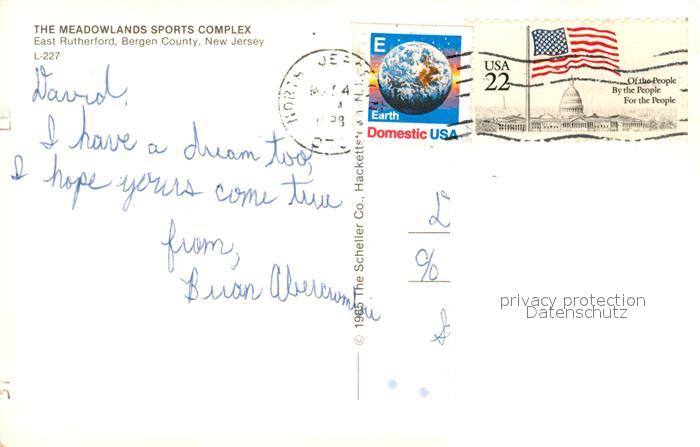 THE MEADOWLANDS SPORTS COMPLEX
East Rutherford, Bergen County, New Jersey
L-227
David,
I have a dream too,
I hope yours come true
from,
Brian Abercrombie
© 1985 The Scheller Co., Hacketts
NORTH JE
E
Earth
Domestic USA
USA
22
Of the People
By the People
For the People
D
%
S
privacy protection
Datenschutz